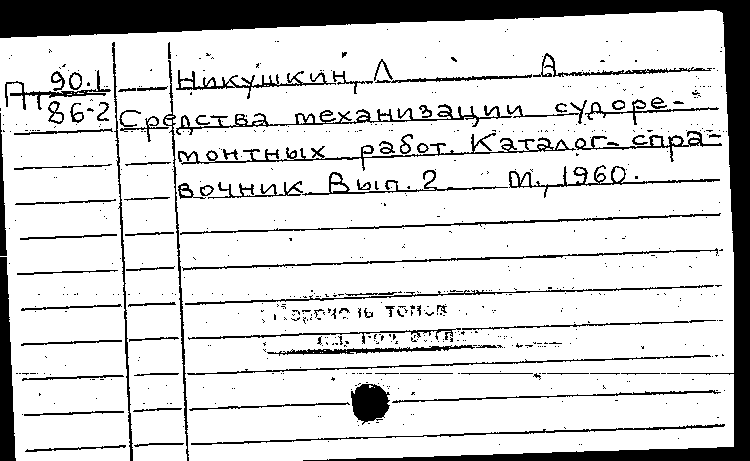 Пт 90.1
86-2
Никушкин, Л А
Средства механизации судоре-
монтных работ. Каталог-спра-
вочник. Вып. 2 М., 1960.
Перечень томов